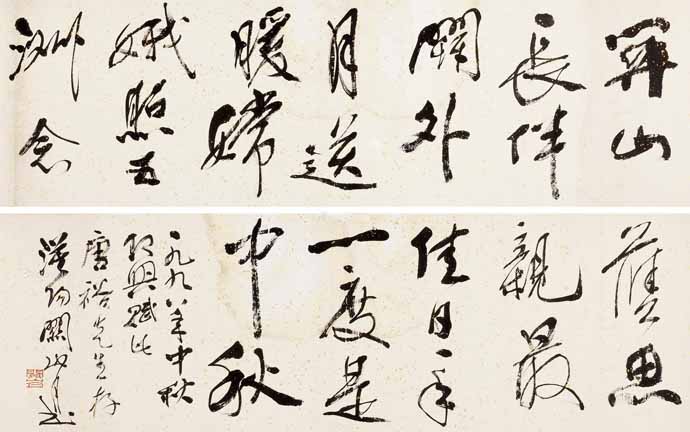 關山
長伴
關外
月送
暖嫦
娥照五
洲念
舊思
親最
佳日年
一度是
中秋
一九九八年中秋
即興賦此
唐裕先生存
漠陽關山月